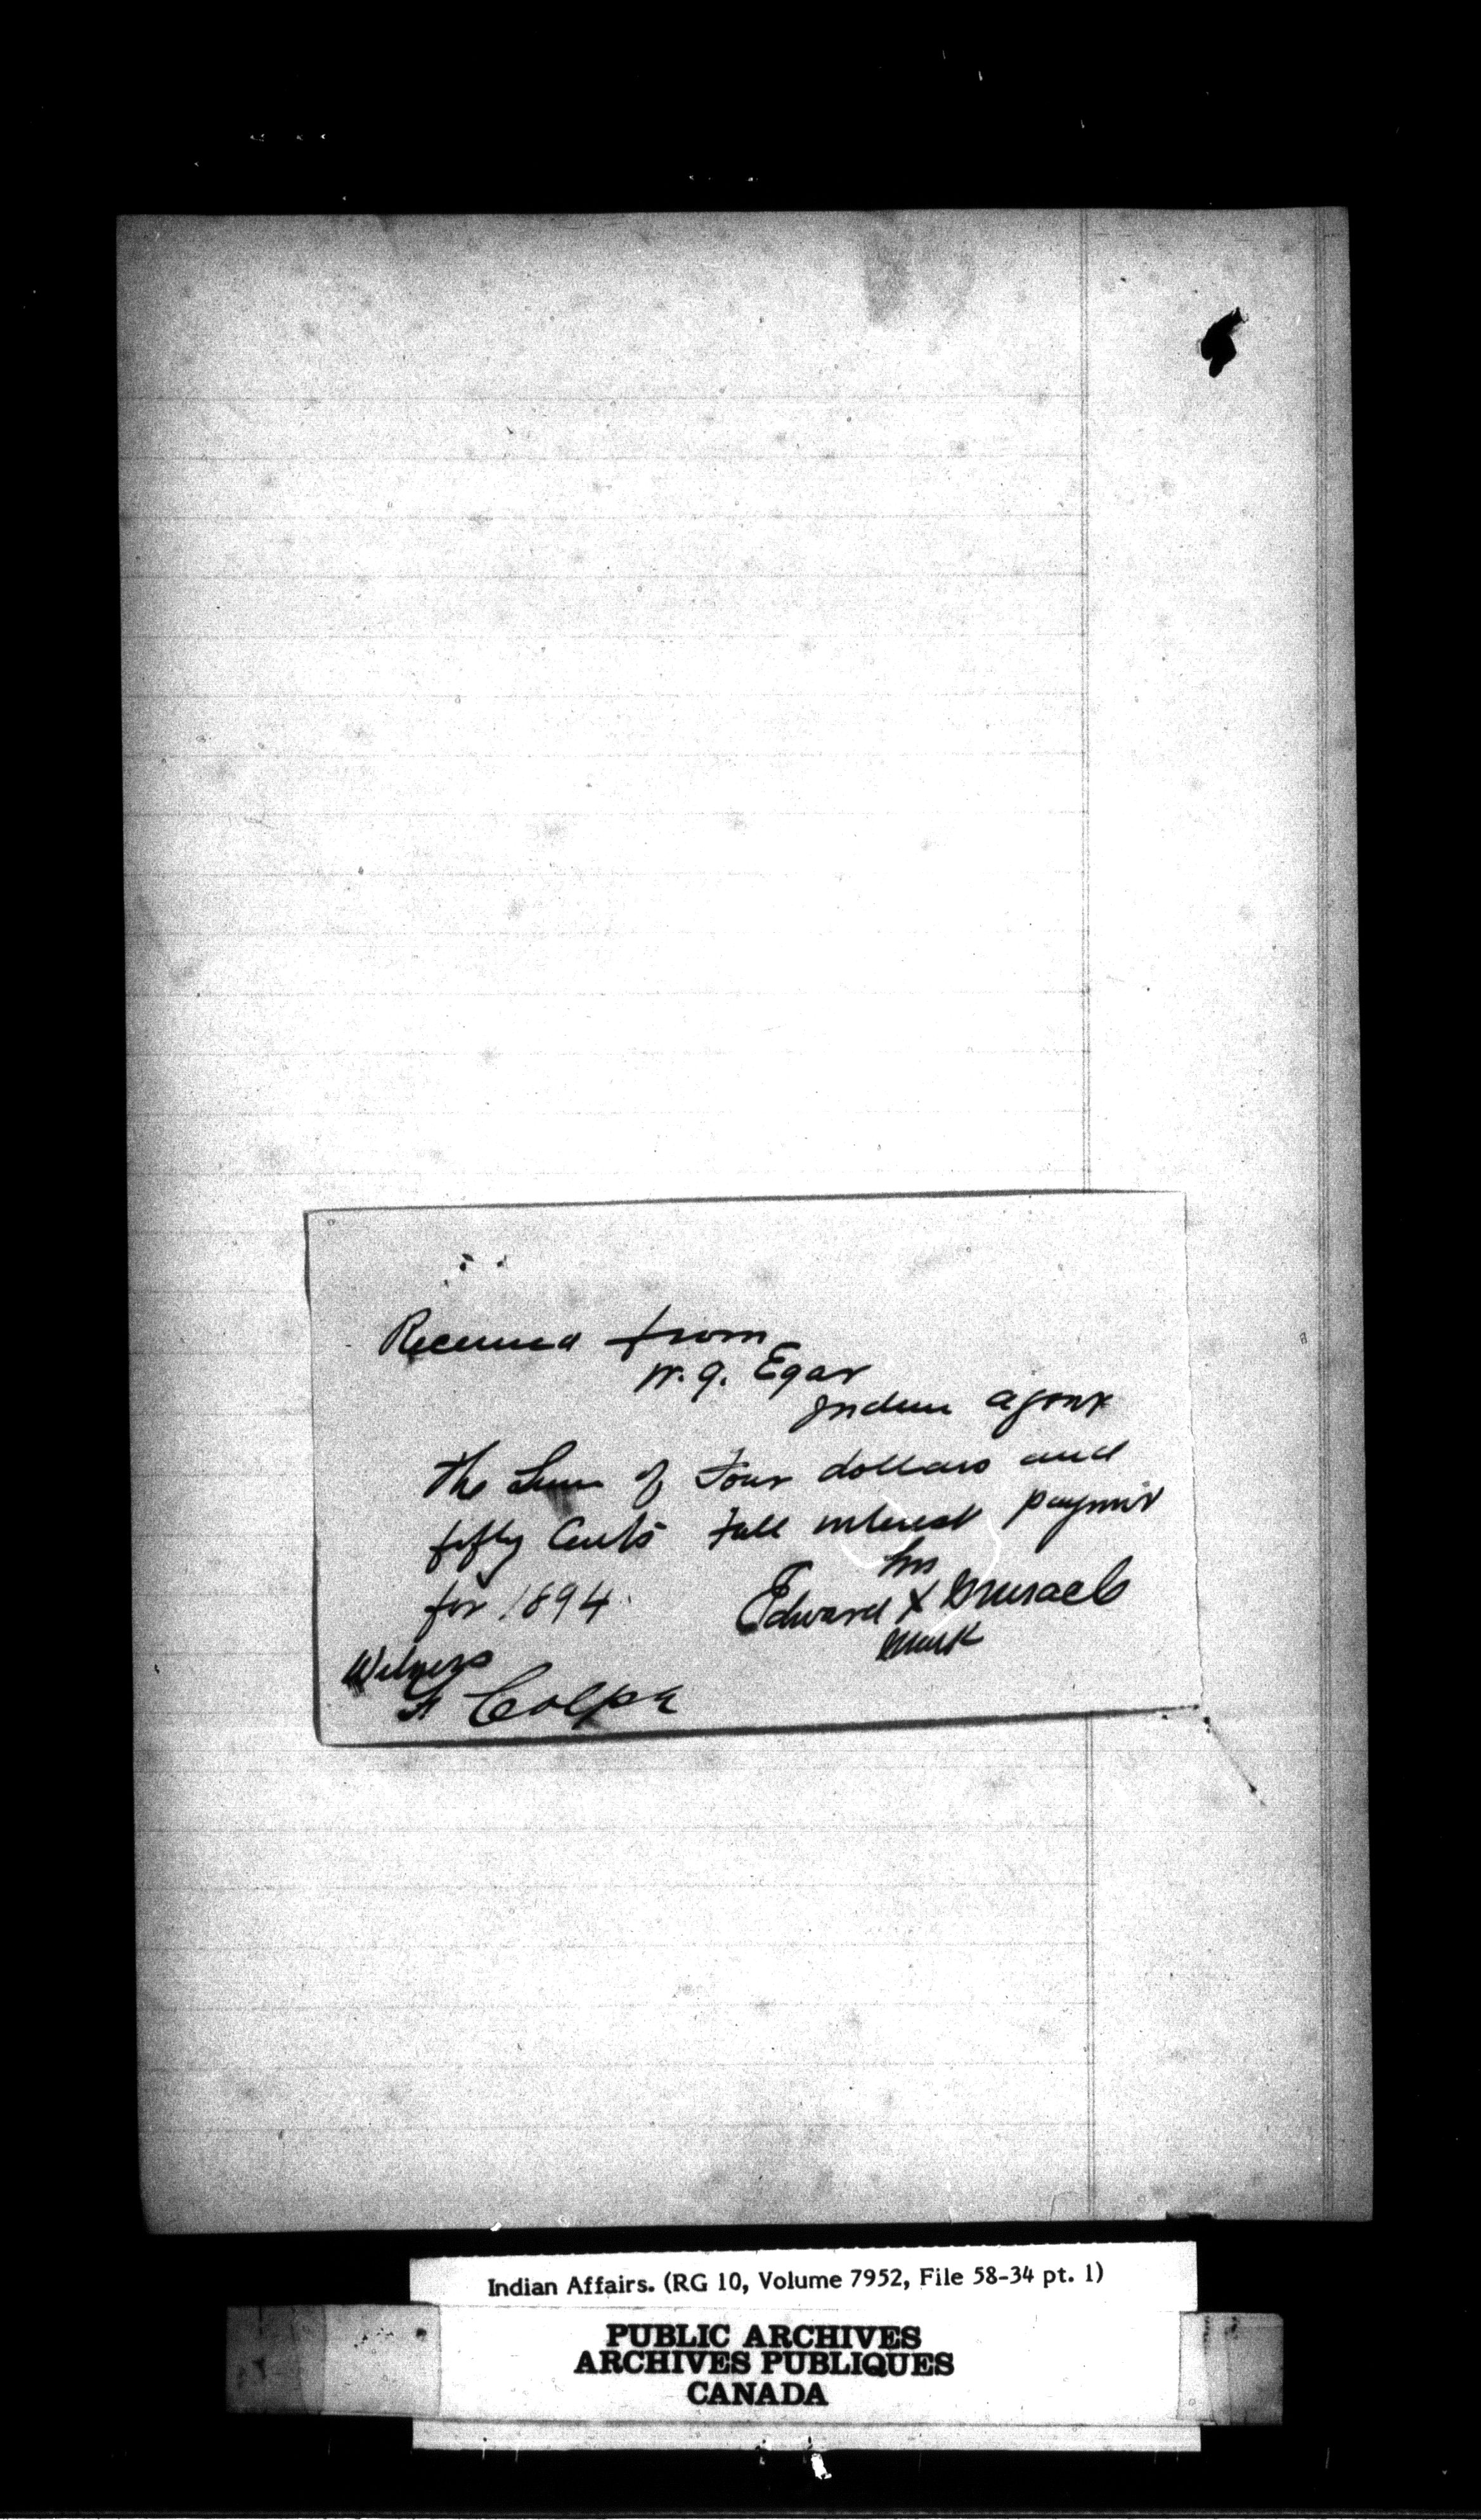 Received from
W. G. Egar
Indian agent
the Sum of Four dollars and
fifty Cents Fall interest payment
for 1894.
his
Edward X
mark
Witness
Indian Affairs. (RG 10, Volume 7952, File 58-34 pt. 1)
PUBLIC ARCHIVES
ARCHIVES PUBLIQUES
CANADA